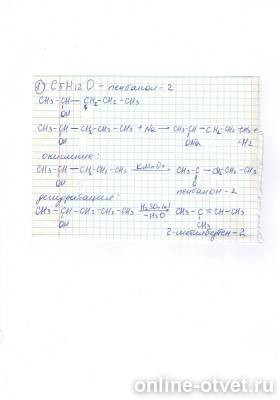 1) C5H12O - пентанол-2
CH3-CH-CH2-CH2-CH3
OH
CH3-CH-CH2-CH2-CH3 + Na → CH3-CH-CH2-CH2-CH3 +
OH ONa -H2
окисление:
CH3-CH-CH2-CH2-CH3 KMnO4→ CH3-C-CH2-CH2-CH3
OH O
пентанон-2
дегидратация:
CH3-CH-CH2-CH2-CH3 H2SO4(к)→ CH3-C=CH-CH3
OH -H2O CH3
2-метилбутен-2
online-otvet.ru